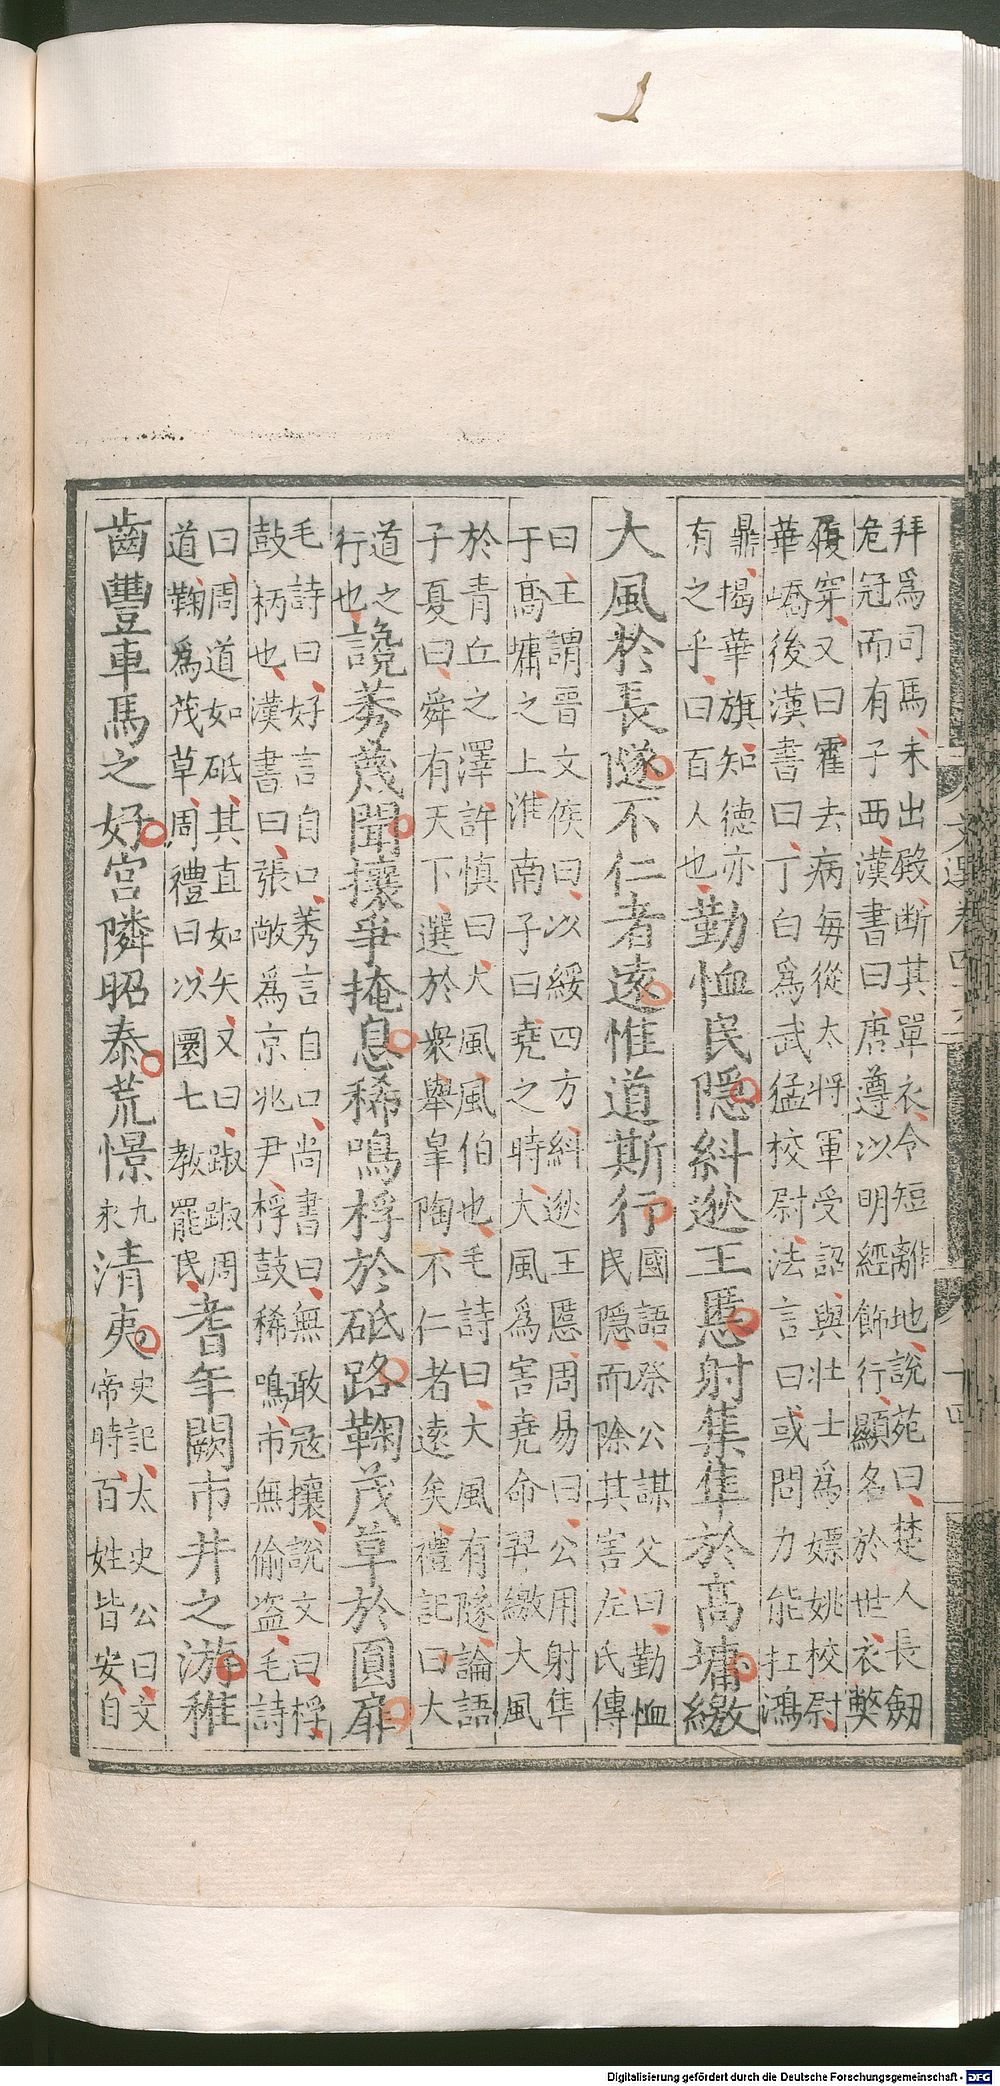 拜爲司馬未出殿斷其單衣令短離地說苑曰楚人長劒
危冠而有子西漢書曰唐遵以明經飾行顯名於世衣獘
履穿又曰霍去病每從大將軍受詔與壯士爲嫖姚校尉
華嶠後漢書曰丁白爲武猛校尉法言曰或問力能扛鴻
鼎揭華旗知德亦
有之乎曰百人也
勤恤民隱糾逖王慝射集隼於高墉繳
大風於長隧不仁者遠惟道斯行
國語祭公謀父曰勤恤
民隱而除其害左氏傳
曰王謂晉文侯曰以綏四方糾逖王慝周易曰公用射隼
于高墉之上淮南子曰堯之時大風爲害堯命羿繳大風
於青丘之澤許慎曰大風風伯也毛詩曰大風有隧論語
子夏曰舜有天下選於衆舉皐陶不仁者遠矣禮記曰大
道之
行也
讒莠蔑聞攘爭掩息稀鳴桴於砥路鞠茂草於圓扉
毛詩曰好言自口莠言自口尚書曰無敢宼攘說文曰桴
鼓柄也漢書曰張敞爲京兆尹桴鼓稀鳴市無偷盗毛詩
曰周道如砥其直如矢又曰踧踧周
道鞠爲茂草周禮曰以圜七教罷民
耆年闕市井之游稚
齒豐車馬之好宫隣昭泰荒憬
九
永
清夷
史記太史公曰文
帝時百姓皆安自
文選卷四十六
十四
Digitalisierung gefördert durch die Deutsche Forschungsgemeinschaft - DFG